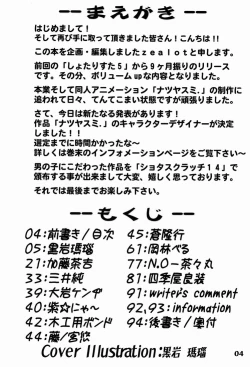 --まえがき--
はじめまして！
そして再び手に取って頂きました皆さん！こんちは！！
この本を企画・編集しましたｚｅａｌｏｔと申します。
前回の「しょたりすた５」から９ヶ月振りのリリース
です。その分、ボリュームupな内容となりました。
本業そして同人アニメーション「ナツヤスミ。」の制作に
追われて日々、てんてこまい状態ですが頑張りました。
さて、今日は新たなる発表があります！
作品「ナツヤスミ。」のキャラクターデザイナーが決定
しました！！
選定までに時間かかったな～
詳しくは巻末のインフォメーションページをご覧下さい～
男の子にこだわった作品を「ショタスクラッチ１４」で
頒布する事が出来まして大変、嬉しく思っております。
それでは最後までお楽しみ下さい。
--もくじ--
04:前書き/目次
05:黒岩瑪瑙
21:加藤茶吉
33:三井純
39:大岩ケンヂ
40:紫☆にゃ～
42:木工用ボンド
44:藤/宮悠
45:蒼隆行
61:岡林べる
77:N.O-茶々丸
81:四季屋良装
91:writer's comment
92,93:information
94:後書き/奥付
Cover Illustration:黒岩 瑪瑙
04